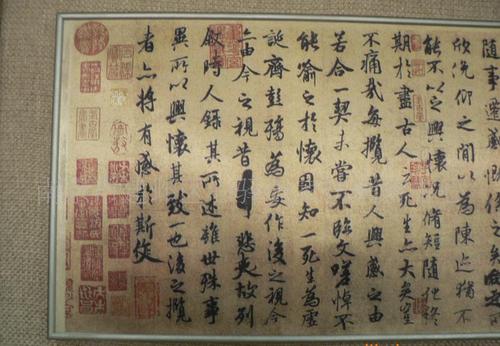 隨事遷感慨係之矣向之
欣俛仰之間以為陳迹猶不
能不以之興懷況脩短隨化終
期於盡古人云死生亦大矣豈
不痛哉每攬昔人興感之由
若合一契未嘗不臨文嗟悼不
能喻之於懷固知一死生為虛
誕齊彭殤為妄作後之視今
亦由今之視昔悲夫故列
敘時人錄其所述雖世殊事
異所以興懷其致一也後之攬
者亦將有感於斯文